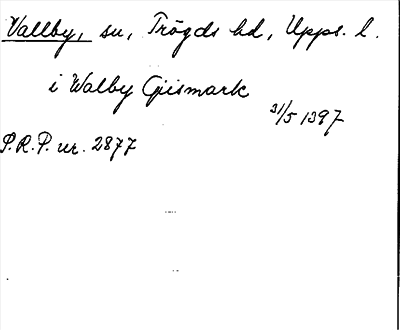 Vallby, sn, Trögds hd, Upps. l.
i Walby Giismark
31/5 1397
P.R.P. nr. 2877